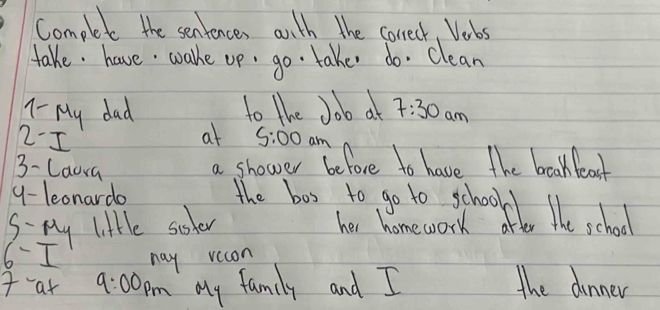 Complete the sentences with the correct Verbs
take • have • wake up • go • take • do • clean
1- My dad to the Job at 7:30 am
2- I at 5:00 am
3- Laura a shower before to have the breakfeast
4- leonardo the bos to go to school
5- My little sister her homework after the school
6- I nay rcon
7- at 9:00pm My family and I the dinner